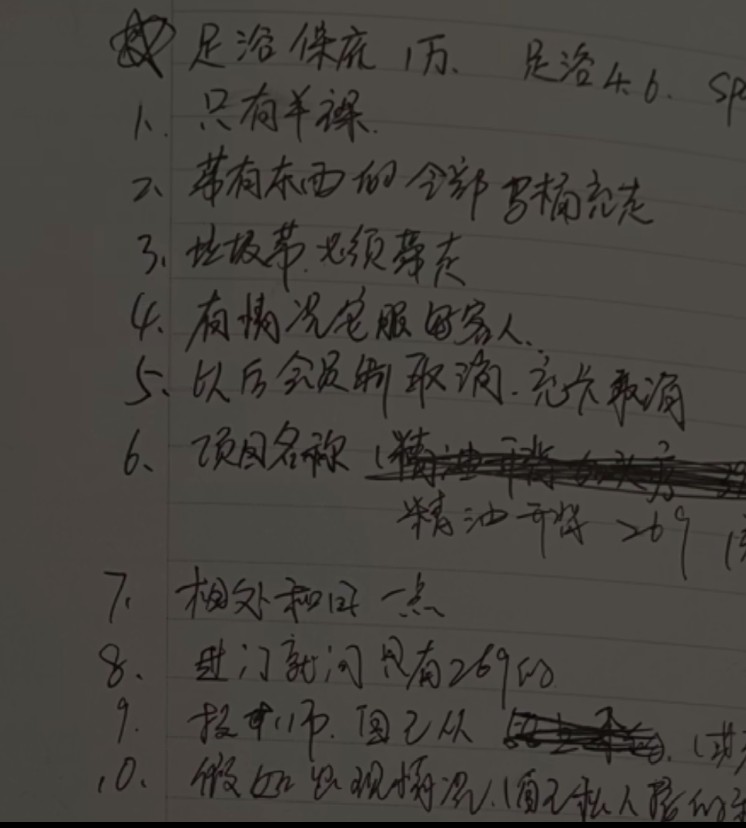 足浴保底1万、 足浴4.6. sp
1、只有半裸.
2、带有东西的全部马桶冲走
3、垃圾带必须带走
4、有情况说服客人.
5、以后会员制取消.充卡取消
6、项目名称(精油开背
精油开背 269
7、相处和睦一点
8、进门就问只有269的
9、技师.自己从
10、假如出现情况.(自己私人接的